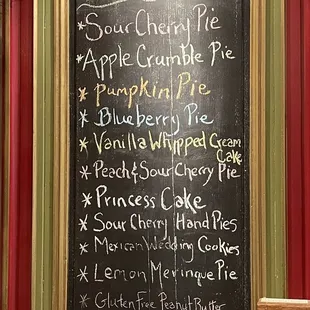 *Sour Cherry Pie
*Apple Crumble Pie
*Pumpkin Pie
*Blueberry Pie
*Vanilla Whipped Cream
Cake
*Peach & Sour Cherry Pie
*Princess Cake
*Sour Cherry Hand Pies
*Mexican Wedding Cookies
*Lemon Meringue Pie
*Gluten Free Peanut Butter